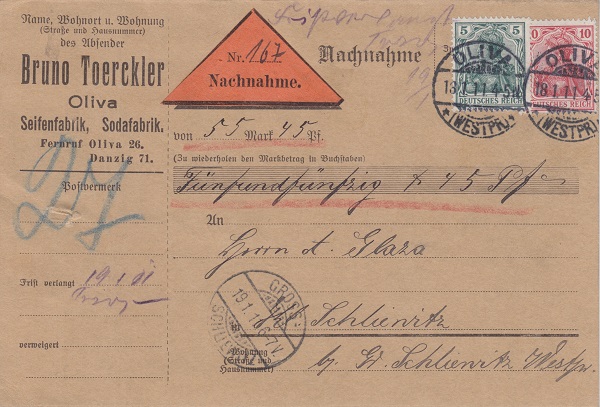 Name, Wohnort u. Wohnung
(Straße und Hausnummer)
des Absender
Bruno Toerckler
Oliva
Seifenfabrik, Sodafabrik.
Fernruf Oliva 26.
Danzig 71.
Postvermerk
Frist verlangt 19 1 11
verweigert
Nr. 167
Nachnahme.
Nachnahme
5
DEUTSCHES REICH
10
DEUTSCHES REICH
OLIVA
18.1.11.4-5N.
*(WESTPR)*
OLIVA
18.1.11.4-
*(WESTPR)
von 55 Mark 45 Pf.
(Zu wiederholen den Markbetrag in Buchstaben)
Fünfundfünfzig & 45 Pf
An
Herrn A. Glaza
19.1.11.6-7V.
in Schlienitz
Wohnung
(Straße und
Hausnummer)
b/ Gr. Schlienitz Westpr.